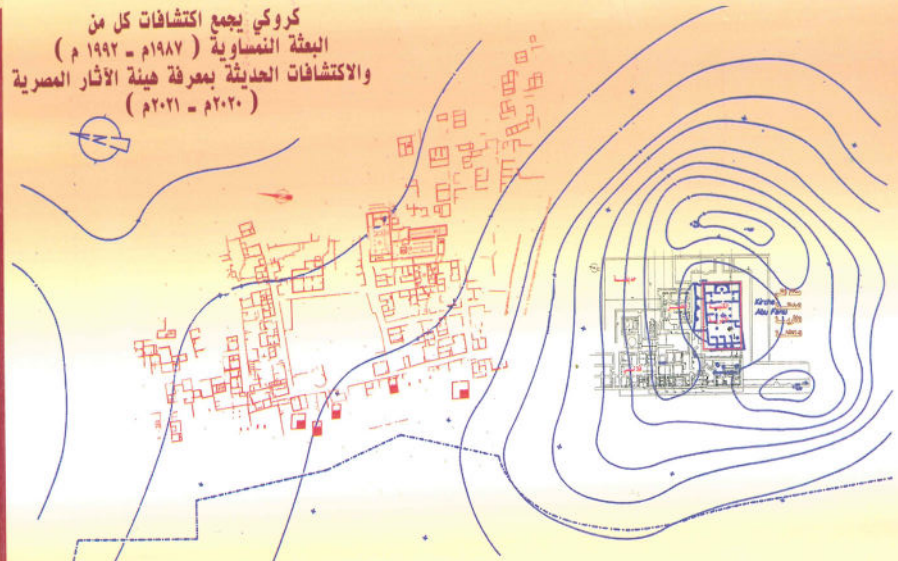 كروكي يجمع اكتشافات كل من
البعثة النمساوية ( ١٩٨٧م ـ ١٩٩٢ م )
والاكتشافات الحديثة بمعرفة هيئة الآثار المصرية
( ٢٠٢٠م ـ ٢٠٢١م )
N
Kirche
Abu Fana